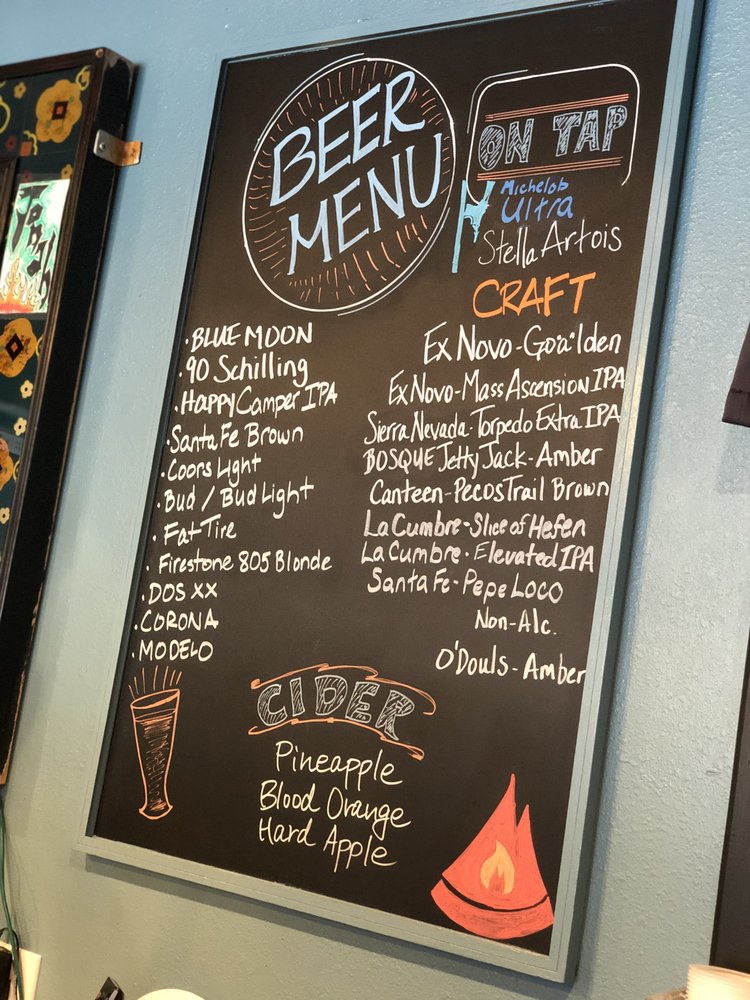 BEER
MENU
ON TAP
Michelob
Ultra
Stella Artois
· BLUE MOON
· 90 Schilling
· Happy Camper IPA
· Santa Fe Brown
· Coors Light
· Bud / Bud Light
· Fat Tire
· Firestone 805 Blonde
· DOS XX
· CORONA
· MODELO
CRAFT
Ex Novo - Go"a"lden
Ex Novo - Mass Ascension IPA
Sierra Nevada - Torpedo Extra IPA
BOSQUE Jetty Jack - Amber
Canteen - Pecos Trail Brown
La Cumbre - Slice of Hefen
La Cumbre - Elevated IPA
Santa Fe - Pepe Loco
Non-Alc.
O'Douls - Amber
CIDER
Pineapple
Blood Orange
Hard Apple